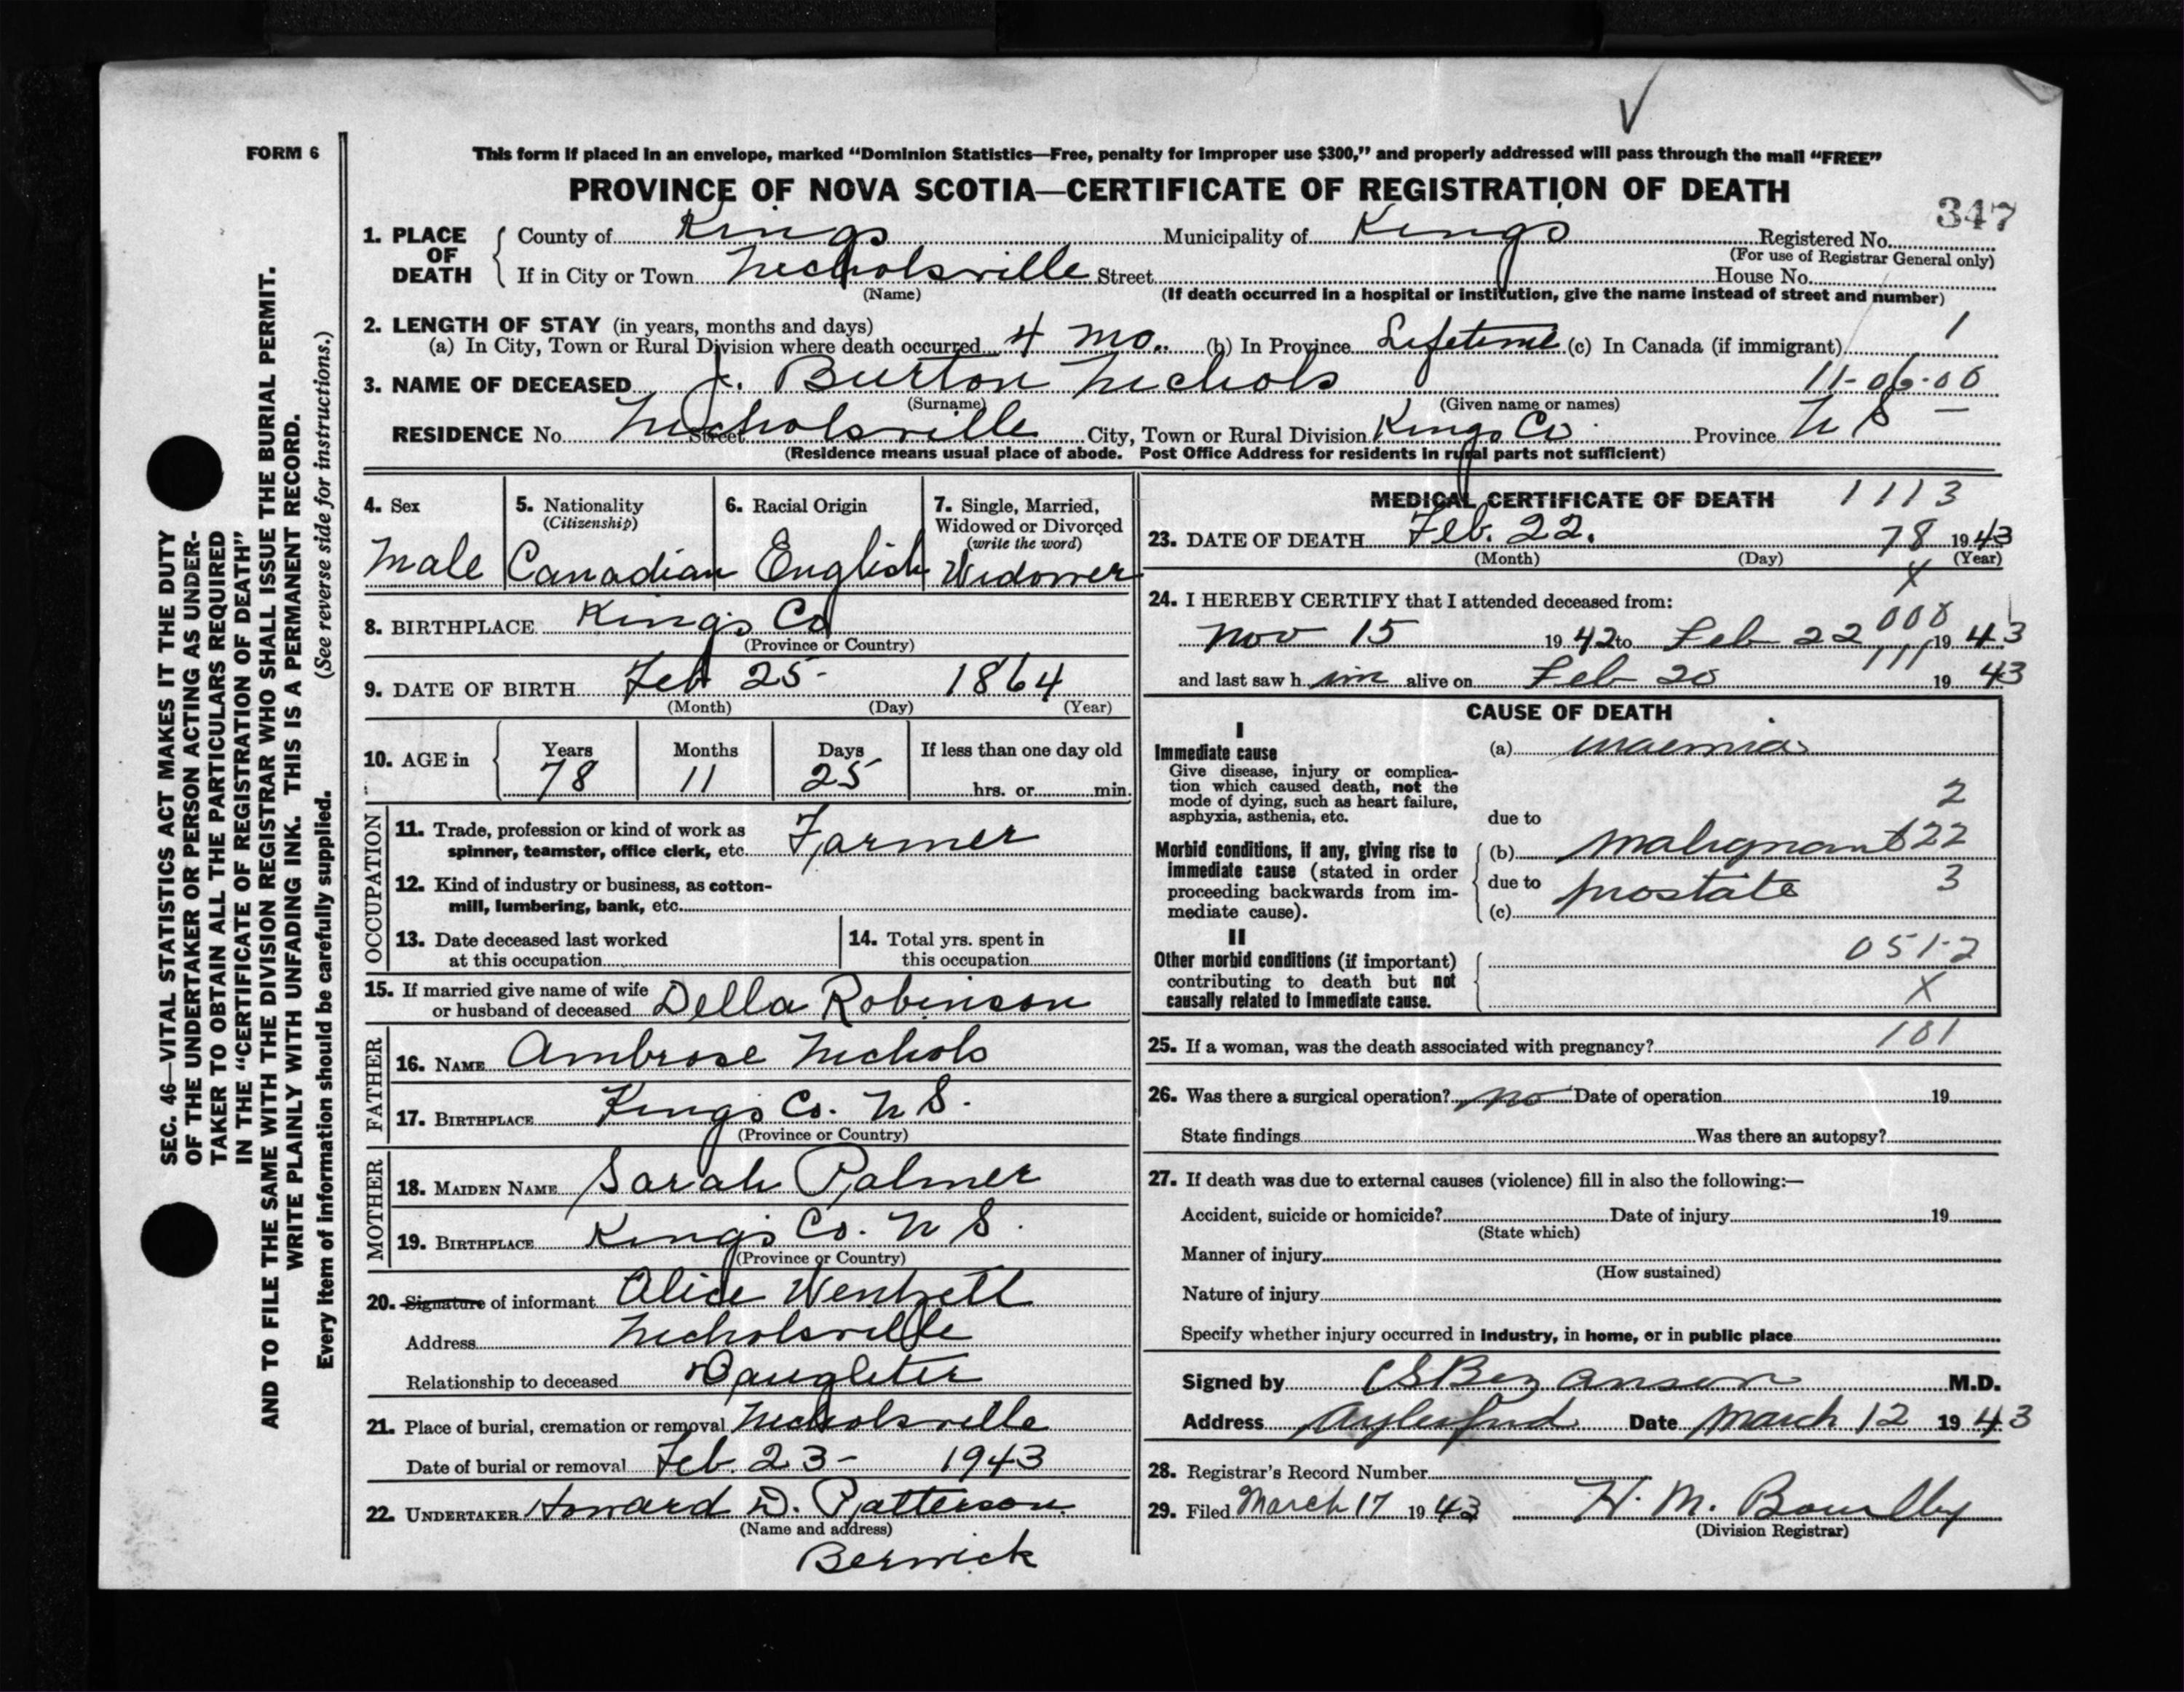 FORM 6
This form if placed in an envelope, marked “Dominion Statistics—Free, penalty for improper use $300,” and properly addressed will pass through the mail “FREE”
PROVINCE OF NOVA SCOTIA—CERTIFICATE OF REGISTRATION OF DEATH
347
1. PLACE OF DEATH County of Kings Municipality of Kings Registered No.
(For use of Registrar General only)
If in City or Town Nicholsville Street House No.
(Name) (If death occurred in a hospital or institution, give the name instead of street and number)
2. LENGTH OF STAY (in years, months and days) 1
(a) In City, Town or Rural Division where death occurred 4 mo. (b) In Province Lifetime (c) In Canada (if immigrant)
3. NAME OF DECEASED J. Burton Nichols 11-06-00
(Surname) (Given name or names)
RESIDENCE No. Nicholsville Street City, Town or Rural Division Kings Co. Province N S —
(Residence means usual place of abode. Post Office Address for residents in rural parts not sufficient)
4. Sex
Male
5. Nationality
(Citizenship)
Canadian
6. Racial Origin
English
7. Single, Married,
Widowed or Divorced
(write the word)
Widower
8. BIRTHPLACE Kings Co
(Province or Country)
9. DATE OF BIRTH Feb 25- 1864
(Month) (Day) (Year)
10. AGE in Years Months Days If less than one day old
78 11 25 hrs. or min.
OCCUPATION
11. Trade, profession or kind of work as
spinner, teamster, office clerk, etc. Farmer
12. Kind of industry or business, as cotton-
mill, lumbering, bank, etc.
13. Date deceased last worked
at this occupation
14. Total yrs. spent in
this occupation
15. If married give name of wife
or husband of deceased Della Robinson
FATHER
16. NAME Ambrose Nichols
17. BIRTHPLACE Kings Co. N S.
(Province or Country)
MOTHER
18. MAIDEN NAME Sarah Palmer
19. BIRTHPLACE Kings Co. N S.
(Province or Country)
20. Signature of informant Alice Wentzell
Address Nicholsville
Relationship to deceased Daughter
21. Place of burial, cremation or removal Nicholsville
Date of burial or removal Feb. 23- 1943
22. UNDERTAKER Howard D. Patterson.
(Name and address)
Berwick
MEDICAL CERTIFICATE OF DEATH 1113
23. DATE OF DEATH Feb. 22. 78 1943
(Month) (Day) (Year)
X
24. I HEREBY CERTIFY that I attended deceased from:
Nov 15 1942 to Feb 22 1943
and last saw him alive on Feb 20 111 19 43
CAUSE OF DEATH
I
Immediate cause
Give disease, injury or complica-
tion which caused death, not the
mode of dying, such as heart failure,
asphyxia, asthenia, etc.
(a) uraemia
2
due to
Morbid conditions, if any, giving rise to
immediate cause (stated in order
proceeding backwards from im-
mediate cause).
(b) malignant 622
due to prostate 3
(c)
II
Other morbid conditions (if important)
contributing to death but not
causally related to immediate cause.
051-2
X
101
25. If a woman, was the death associated with pregnancy?
26. Was there a surgical operation? no Date of operation 19
State findings Was there an autopsy?
27. If death was due to external causes (violence) fill in also the following:—
Accident, suicide or homicide? Date of injury 19
(State which)
Manner of injury
(How sustained)
Nature of injury
Specify whether injury occurred in industry, in home, or in public place
Signed by C S Bezanson M.D.
Address Aylesford Date March 12 1943
28. Registrar's Record Number
29. Filed March 17 1943 H. M.
(Division Registrar)
SEC. 46—VITAL STATISTICS ACT MAKES IT THE DUTY
OF THE UNDERTAKER OR PERSON ACTING AS UNDER-
TAKER TO OBTAIN ALL THE PARTICULARS REQUIRED
IN THE “CERTIFICATE OF REGISTRATION OF DEATH”
AND TO FILE THE SAME WITH THE DIVISION REGISTRAR WHO SHALL ISSUE THE BURIAL PERMIT.
WRITE PLAINLY WITH UNFADING INK. THIS IS A PERMANENT RECORD.
Every item of information should be carefully supplied. (See reverse side for instructions.)